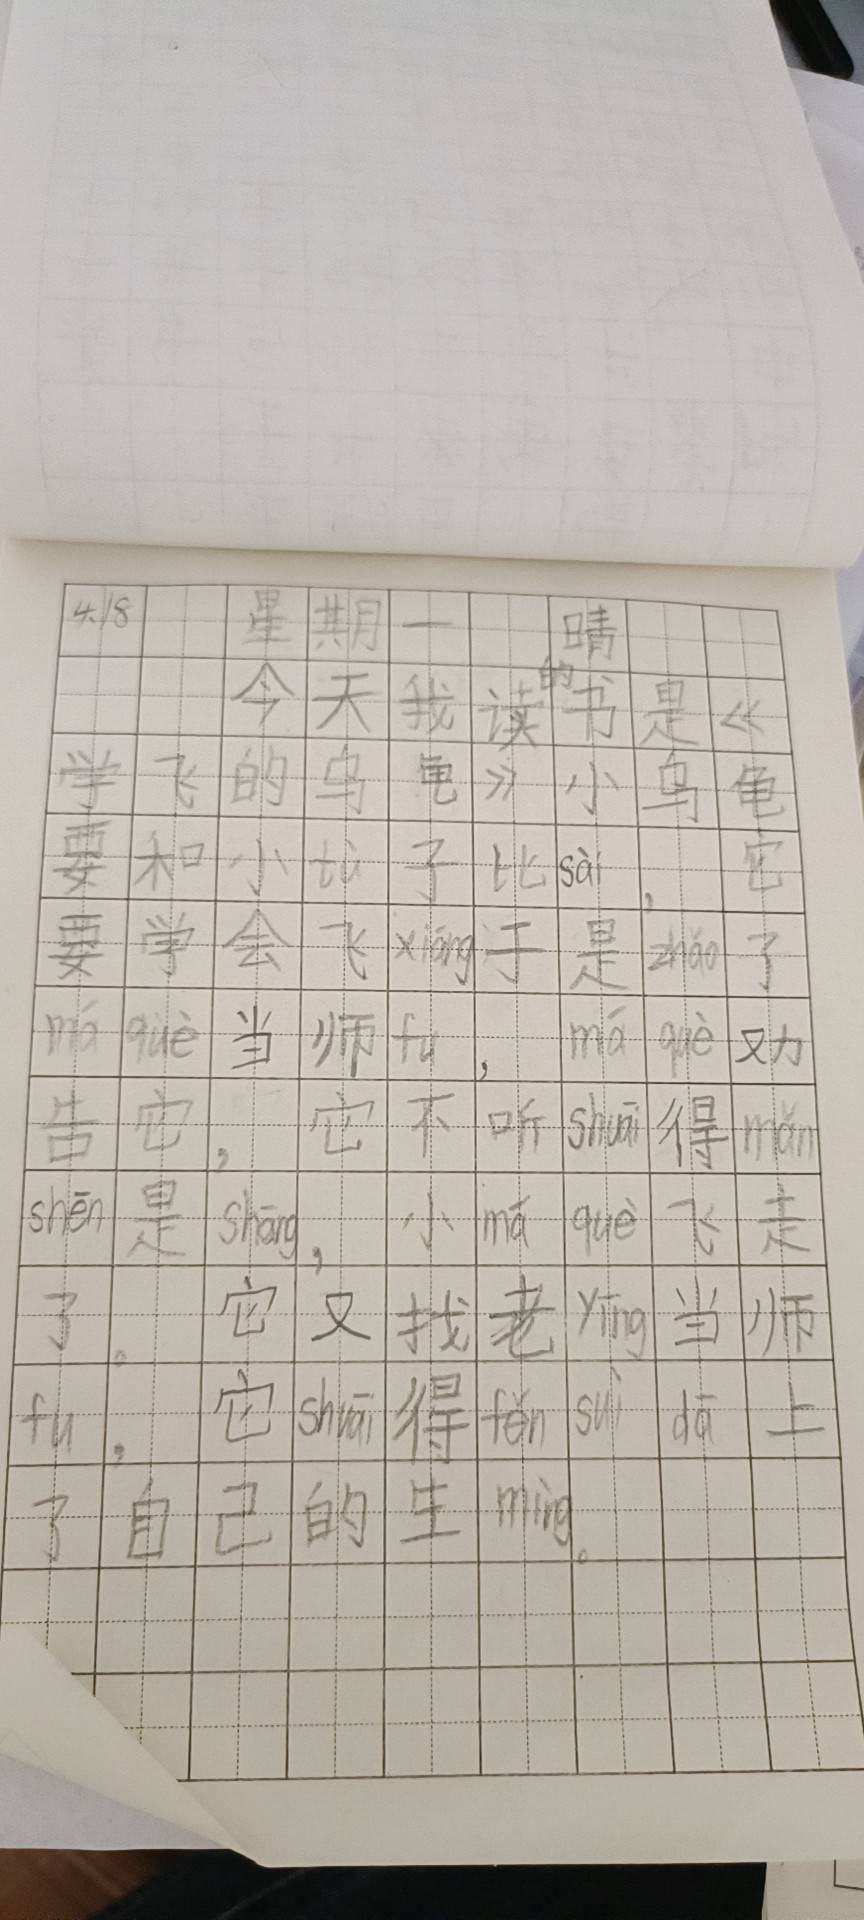 4.18 星期一 晴
今天我读的书是《
学飞的乌龟》小乌龟
要和小tù子比sài，它
要学会飞xiáng于是zhǎo了
má què当师fu，má què劝
告它，它不听shuāi得mǎn
shēn是shāng，小má què飞走
了。它又找老Yīng当师
fu，它shuāi得fěn suì dā上
了自己的生mìng。